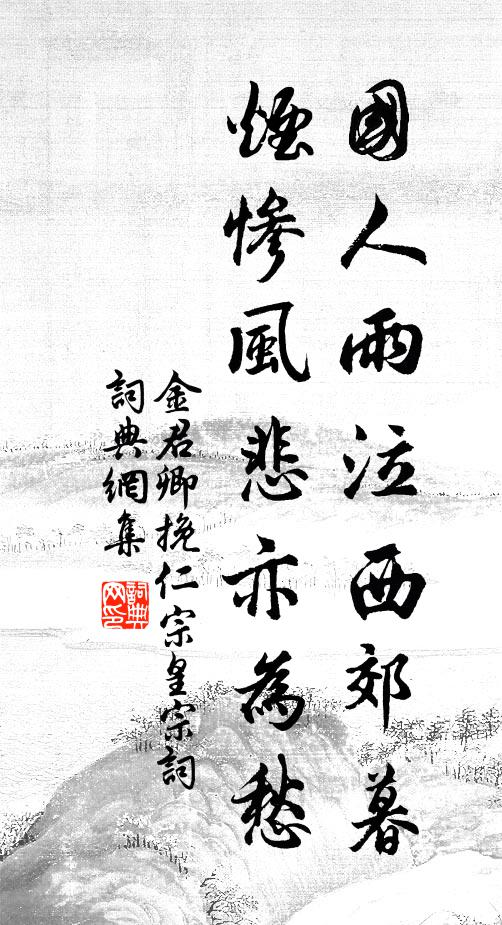 國人雨泣西郊暮
煙慘風悲亦為愁
金君卿挽仁宗皇宗詞
詞典網集
詞典網印